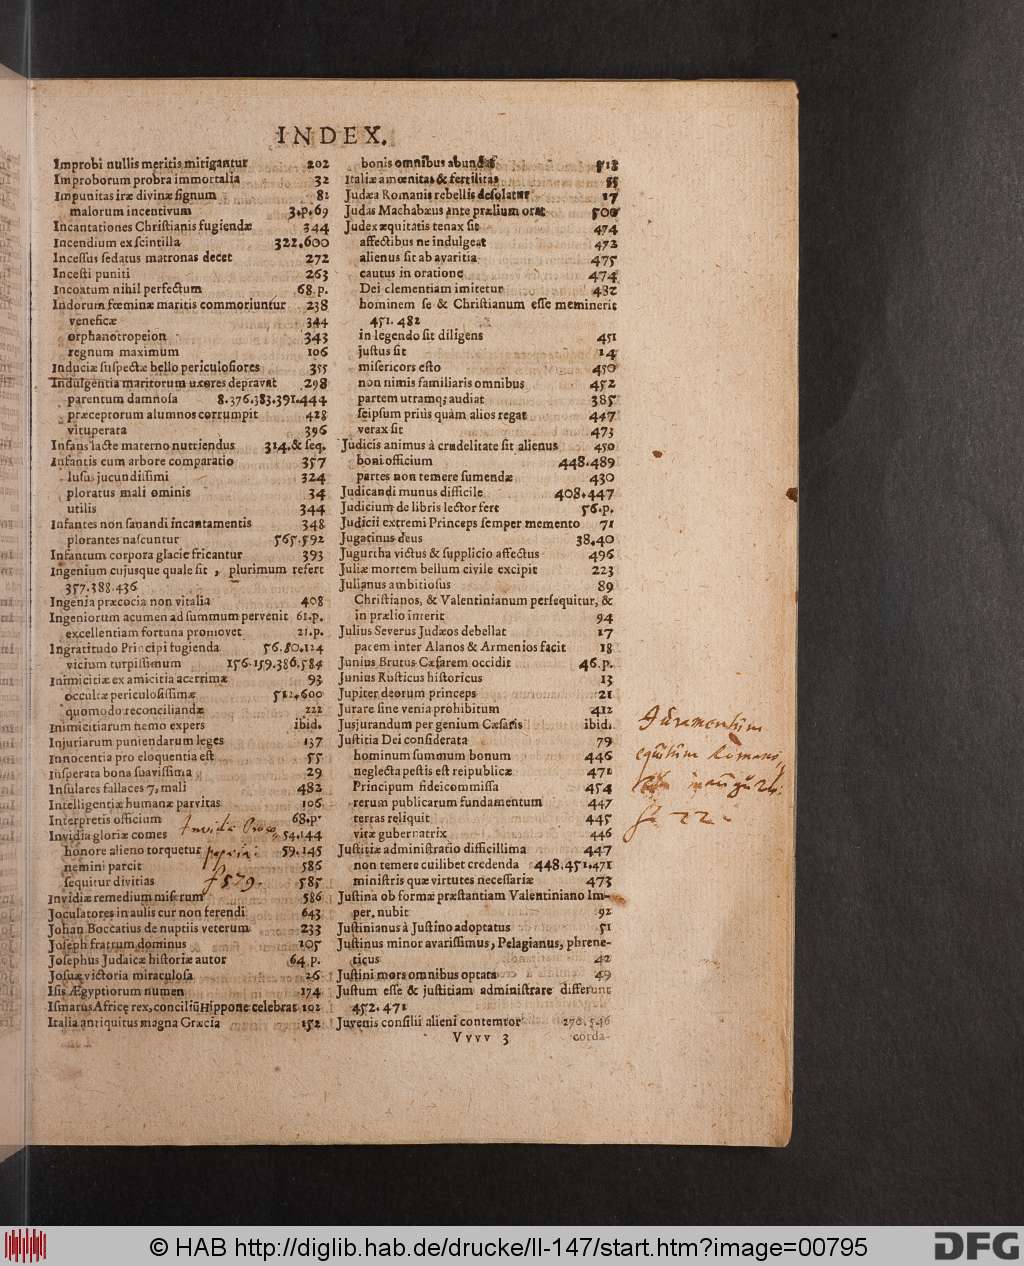 INDEX.
Improbi nullis meritis mitigantur 202
Improborum probra immortalia 32
Impunitas iræ divinæ ſignum 82
malorum incentivum 3.p.69
Incantationes Chriſtianis fugiendæ 344
Incendium ex ſcintilla 322.600
Inceſſus ſedatus matronas decet 272
Inceſti puniti 263
Incoatum nihil perfectum 68.p.
Indorum fœminæ maritis commoriuntur 238
veneficæ 344
orphanotropeion 343
regnum maximum 106
Induciæ ſuſpectæ bello periculoſiores 355
Indulgentia maritorum uxores depravat 298
parentum damnoſa 8.376.383.391.444
præceptorum alumnos corrumpit 428
vituperata 396
Infans lacte materno nutriendus 314.& ſeq.
Infantis cum arbore comparatio 357
luſus jucundiſſimi 324
ploratus mali ominis 34
utilis 344
Infantes non ſanandi incantamentis 348
plorantes naſcuntur 565.592
Infantum corpora glacie fricantur 393
Ingenium cujusque quale ſit, plurimum refert
357.388.436
Ingenia præcocia non vitalia 408
Ingeniorum acumen ad ſummum pervenit 61.p.
excellentiam fortuna promovet 21.p.
Ingratitudo Principi fugienda 56.80.124
vicium turpiſſimum 156.159.386.584
Inimicitiæ ex amicitia acerrimæ 93
occultæ periculoſiſſimæ 512.600
quomodo reconciliandæ 222
Inimicitiarum nemo expers ibid.
Injuriarum puniendarum leges 137
Innocentia pro eloquentia eſt 55
Inſperata bona ſuaviſſima 29
Inſulares fallaces 7, mali 482
Intelligentiæ humanæ parvitas 106
Interpretis officium 68.p.
Invidia gloriæ comes 54.144
Invidia
honore alieno torquetur 59.145
nemini parcit 586
ſequitur divitias 585
f 579.
Invidiæ remedium miſerum 586
Joculatores in aulis cur non ferendi 643
Johan Boccatius de nuptiis veterum 233
Joſeph fratrum dominus 105
Joſephus Judaicæ hiſtoriæ autor 64 p.
Joſuæ victoria miraculoſa 26
Iſis Ægyptiorum numen 174
Iſmarus Africę rex, conciliũ Hippone celebrat 102
Italia antiquitus magna Græcia 152
bonis omnibus abundat 513
Italiæ amœnitas & fertilitas 55
Judæa Romanis rebellis deſolatur 17
Judas Machabæus ante prælium orat 500
Judex æquitatis tenax ſit 474
affectibus ne indulgeat 472
alienus ſit ab avaritia 475
cautus in oratione 474
Dei clementiam imitetur 482
hominem ſe & Chriſtianum eſſe meminerit
451. 482
in legendo ſit diligens 451
juſtus ſit 14
miſericors eſto 450
non nimis familiaris omnibus 452
partem utramq; audiat 385
ſeipſum priùs quàm alios regat 447
verax ſit 473
Judicis animus à crudelitate ſit alienus 450
boni officium 448.489
partes non temere ſumendæ 430
Judicandi munus difficile 408.447
Judicium de libris lector fert 56.p.
Judicii extremi Princeps ſemper memento 71
Jugatinus deus 38.40
Jugurtha victus & ſupplicio affectus 496
Juliæ mortem bellum civile excipit 223
Julianus ambitioſus 89
Chriſtianos, & Valentinianum perſequitur, &
in prælio interit 94
Julius Severus Judæos debellat 17
pacem inter Alanos & Armenios facit 18
Junius Brutus Cæſarem occidit 46.p.
Junius Ruſticus hiſtoricus 13
Jupiter deorum princeps 21
Jurare ſine venia prohibitum 412
Jusjurandum per genium Cæſaris ibid.
Juſtitia Dei conſiderata 79
hominum ſummum bonum 446
neglecta peſtis eſt reipublicæ 471
Principum fideicommiſſa 454
rerum publicarum fundamentum 447
terras reliquit 445
vitæ gubernatrix 446
Juſtitiæ adminiſtratio difficillima 447
non temere cuilibet credenda 448.451.471
miniſtris quæ virtutes neceſſariæ 473
Juſtina ob formæ præſtantiam Valentiniano Im-
per. nubit 92
Juſtinianus à Juſtino adoptatus 51
Juſtinus minor avariſſimus, Pelagianus, phrene-
ticus 42
Juſtini mors omnibus optata 49
Juſtum eſſe & juſtitiam adminiſtrare differunt
452. 471
Juvenis conſilii alieni contemtor 270.546
Vvvv 3 corda-
Juramentum
equitum Romani
© HAB http://diglib.hab.de/drucke/li-147/start.htm?image=00795
DFG